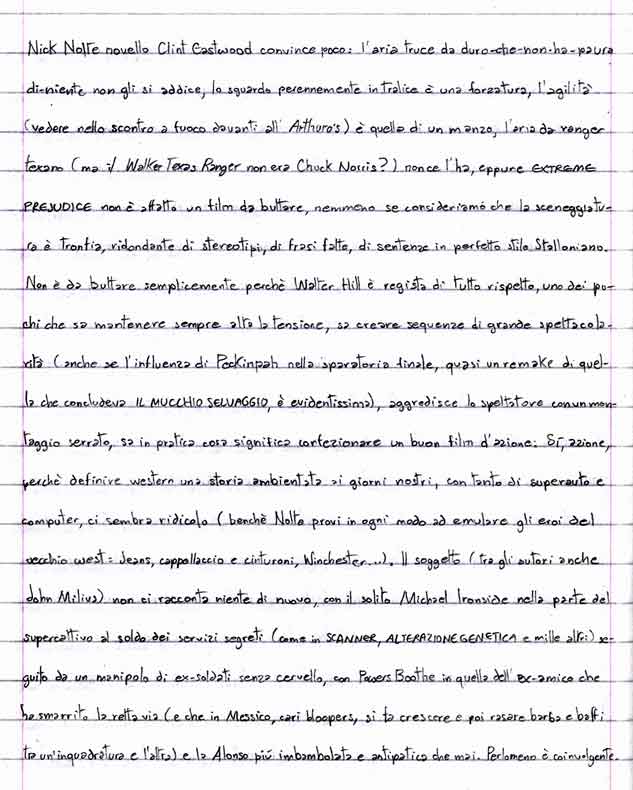 Nick Nolte novello Clint Eastwood convince poco: l'aria truce da duro-che-non-ha-paura
di-niente non gli si addice, lo sguardo perennemente in tralice è una forzatura, l'agilità
(vedere nello scontro a fuoco davanti all' Arthuro's) è quella di un manzo, l'aria da ranger
texano (ma il Walker Texas Ranger non era Chuck Norris?) non ce l'ha, eppure EXTREME
PREJUDICE non è affatto un film da buttare, nemmeno se consideriamo che la sceneggiatu-
ra è tronfia, ridondante di stereotipi, di frasi fatte, di sentenze in perfetto stile Stalloniano.
Non è da buttare semplicemente perchè Walter Hill è regista di tutto rispetto, uno dei po-
chi che sa mantenere sempre alta la tensione, sa creare sequenze di grande spettacola-
rità (anche se l'influenza di Peckinpah nella sparatoria finale, quasi un remake di quel-
la che concludeva IL MUCCHIO SELVAGGIO, è evidentissima), aggredisce lo spettatore con un mon-
taggio serrato, sa in pratica cosa significa confezionare un buon film d'azione. Sí, azione,
perchè definire western una storia ambientata ai giorni nostri, con tanto di superauto e
computer, ci sembra ridicolo (benchè Nolte provi in ogni modo ad emulare gli eroi del
vecchio west: Jeans, cappellaccio e cinturoni, Winchester...). Il soggetto (tra gli autori anche
John Milius) non ci racconta niente di nuovo, con il solito Michael Ironside nella parte del
supercattivo al soldo dei servizi segreti (come in SCANNER, ALTERAZIONE GENETICA e mille altri) se-
guito da un manipolo di ex-soldati senza cervello, con Powers Boothe in quella dell' ex-amico che
ha smarrito la retta via (e che in Messico, cari bloopers, si fa crescere e poi rasare barba e baffi
tra un'inquadratura e l'altra) e la Alonso piú imbambolata e antipatica che mai. Perlomeno è coinvolgente.